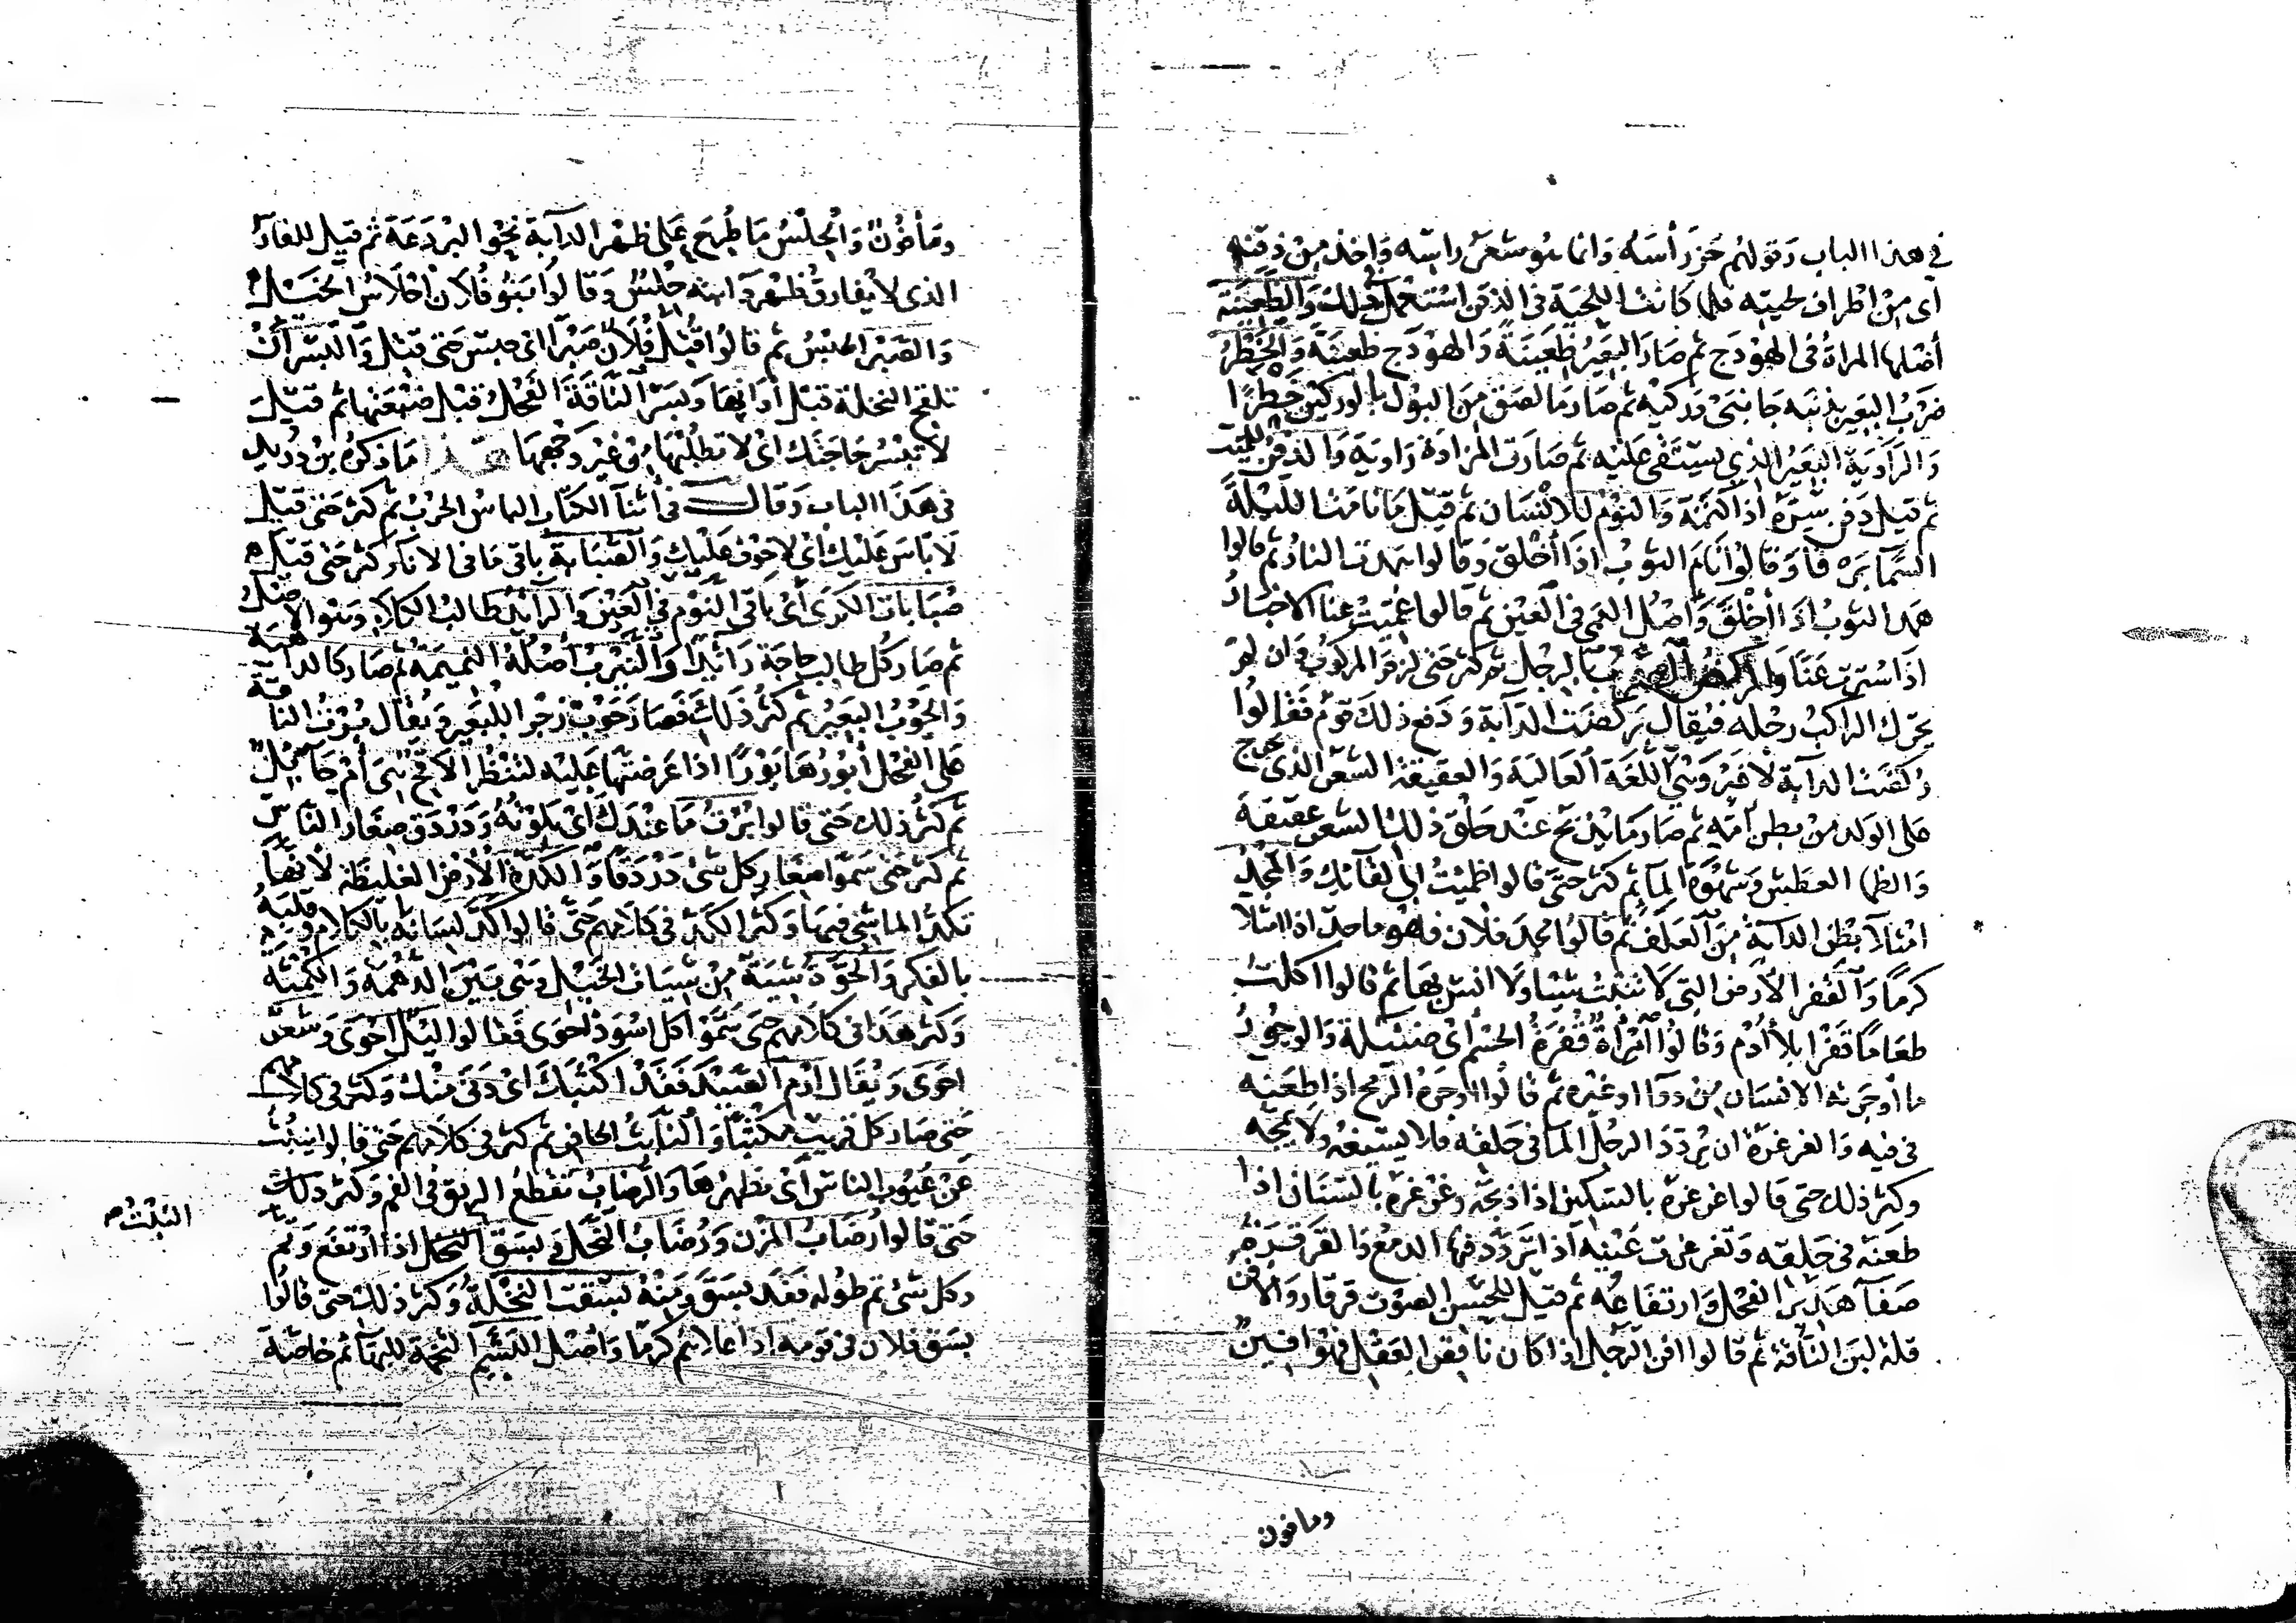 في هذا الباب وقولهم حز رأسه وانما هو شعر راسه واخذ من ذقنه
أي من اطراف لحيته فلما كانت اللحية في الذقن استعمل في ذلك والظعينة
أصلها المراة في الهودج ثم صار البعير ظعينة والهودج ظعينة والخطر
ضرب البعير بذنبه جانبي وركيه ثم صار ما لصق من البول بالوركين خطرا
والراوية البعير الذي يستقى عليه ثم صارت المزادة راوية والدفن للميت
ثم قيل دفن سره اذا كتمه والنوم للانسان ثم قيل ما نامت الليلة
السما برقا وقالوا نام الثوب اذا أخلق وقالوا همدت النار ثم قالوا
همد الثوب اذا أخلق وأصل العمى في العين ثم قالوا عميت عنا الاخبار
اذا سترت عنا والركض الضرب بالرجل ثم كثر حتى لزم المركوب وان لم
يحرك الراكب رجله فيقال ركضت الدآبة ودفع ذلك قوم فقالوا
ركضت الدآبة لا غير وهي اللغة العالية والعقيقة الشعر الذي يخرج
على الولد من بطن أمه ثم صار ما يذبح عند حلق ذلك الشعر عقيقة
والظما العطش وشهوة المآ ثم كثر حتى قالوا ظمئت الى لقآئك والمجد
امتلآ بطن الدآبة من العلف ثم قالوا مجد فلان فهو ماجد اذا امتلا
كرما والقفر الارض التي لا تنبت شيا ولا انس بها ثم قالوا اكلت
طعاما قفرا بلا أدم وقالوا امرأة قفرة الجسم أي ضئيلة والوجور
ما أوجرته الانسان من دوآ او غيره ثم قالوا اوجره الرمح اذا طعنه
في فيه والغرغرة ان يردد الرجل الما في حلقه فلا يسيغه ولا يمجه
وكثر ذلك حتى قالوا غرغره بالسكين اذا ذبحه وغرغره بالسنان اذا
طعنه في حلقه وتغرغرت عينه اذا تردد فيها الدمع والقرقرة
صفآ هدير الفحل وارتفاعه ثم قيل للحسن الصوت قرقار والافن
قلة لبن الناقة ثم قالوا افن الرجل اذا كان ناقص العقل فهو افين
ومافون
ومأفون والحلس ما طرح على ظهر الدآبة نحو البردعة ثم قيل للفارس
الذي لا يفارق ظهر دآبته حلس وقالوا بنو فلان أحلاس الخيل
والصبر الحبس ثم قالوا قتل فلان صبرا اي حبس حتى قتل والبسر أن
تلقح النخلة قبل أوانها وبسر الناقة الفحل قبل ضبعتها ثم قيل
لا تبسر حاجتك اي لا تطلبها من غير وجهها هذا ما ذكره بن دريد
في هذا الباب وقال في أثنآ الكتاب الباس الحرب ثم كثر حتى قيل
لا باس عليك أي لا خوف عليك والصبابة باقي ما في الانآ وكثر حتى قيل
صبابات الكرى أي باقي النوم في العين والرآئد طالب الكلا وهو الاصل
ثم صار كل طالب حاجة رآئدا والنيرب أصله النميمة ثم صار كالداهية
والحوب البعير ثم كثر ذلك فصار حوب زجرا للبعير ويقال برت الناقة
على الفحل أبورها بورا اذا عرضتها عليه لتنظر الاقح هي أم حآئل
ثم كثر ذلك حتى قالوا برت ما عندك أي بلوته ودردق صغار الناس
ثم كثر حتى سموا صغار كل شي دردقا والكدة الارض الغليظة لانها
تكد الماشي فيها وكثر الكد في كلامهم حتى قالوا كد لسانه بالكلام وقلبه
بالفكر والحوة شية من شيات الخيل وهي بين الدهمة والكمتة
وكثر هذا في كلامهم حتى سموا كل اسود أحوى فقالوا ليل احوى وشعر
احوى ويقال ارم الصيد فقد اكثبك أي دنى منك وكثر في كلامهم
حتى صار كل قريب مكثبا والنابث الحافر ثم كثر في كلامهم حتى قالوا ينبث
عن عيوب الناس أي يظهرها والرضاب تقطع الريق في الفم وكثر ذلك
حتى قالوا رضاب المزن ورضاب النحل وبسق النخل اذا ارتفع وتم
وكل شي تم طوله فقد بسق ومنه بسقت النخلة وكثر ذلك حتى قالوا
بسق فلان في قومه اذا علاهم كرما وأصل البشم التخمة للبهآئم خاصة